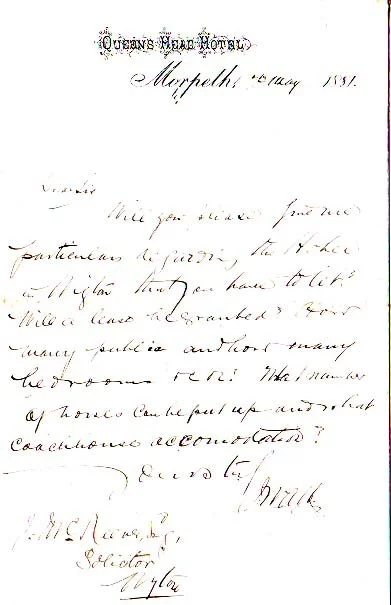 QUEENS HEAD HOTEL
Morpeth, May 1881.
Dear Sir
Will you please give me
particulars regarding the Hotel
in Wigton that you have to let?
Will a lease be granted? How
many public and how many
bedrooms &c &c? What number
of horses can be put up and what
coachhouse accomodation?
Yours try
J. Mc Esq,
Solicitor
Wigton